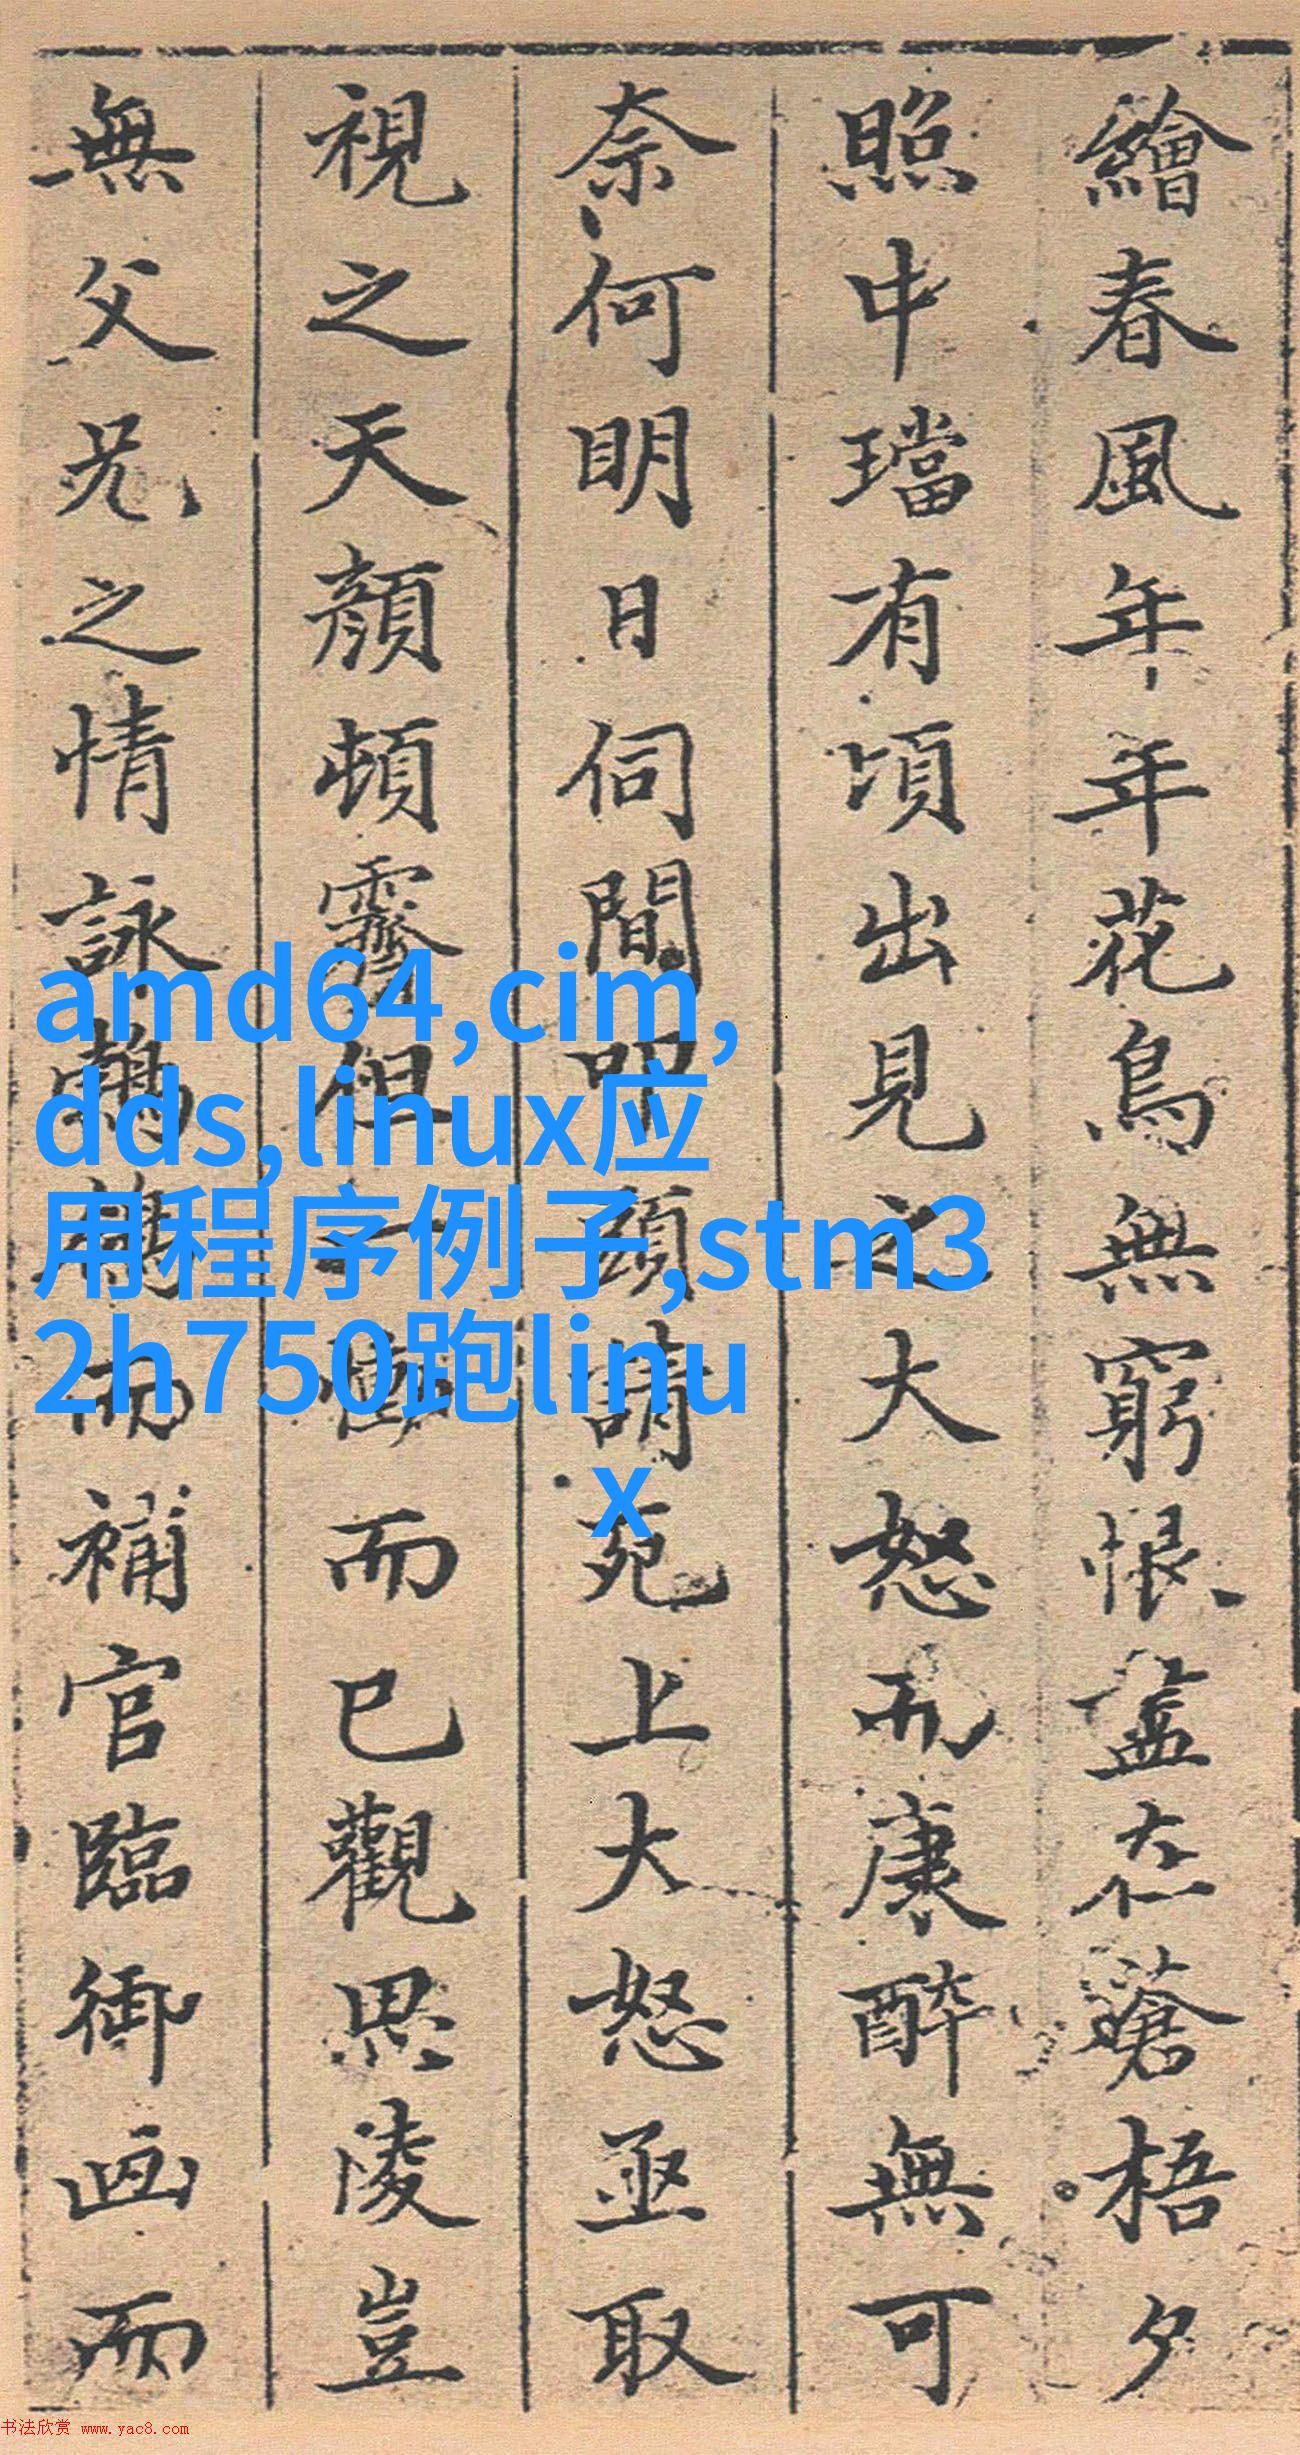 繪春風年年花鳥無窮恨盡在蒼梧夕
照中璫有頃出見之大怒而康醉無可
奈何明日伺間叩頭請苑上大怒亟取
視之天顏頓霽但一慟而已觀思陵豈
無父兄之情詠鶺鴒而補官臨御画而
amd64,cim,
dds,linux应
用程序例子,stm3
2h750跑linu
x
书法欣赏 www.yac8.com